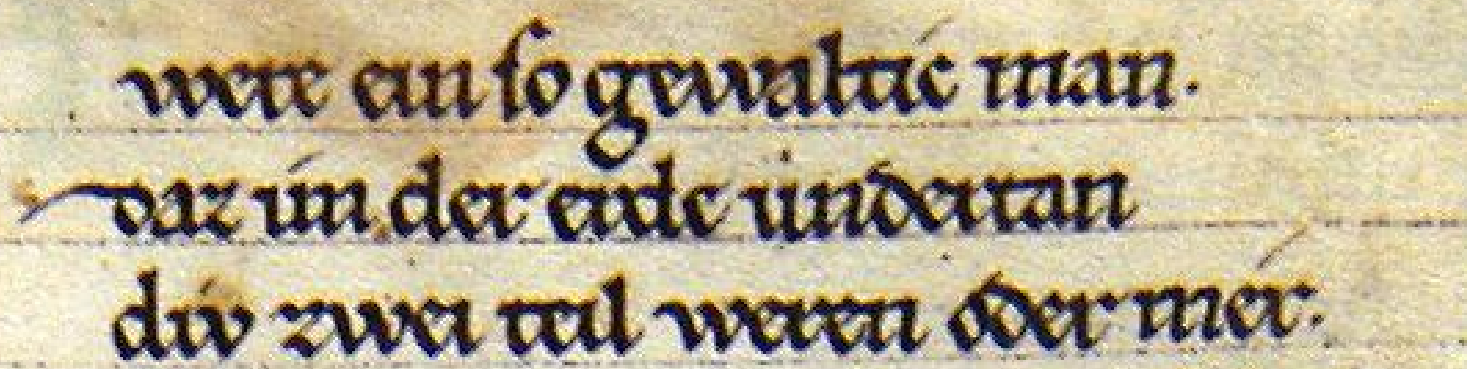 were ein ſo gewaltic man.
daz im der erde undertan
div zwei teil weren oder mer.